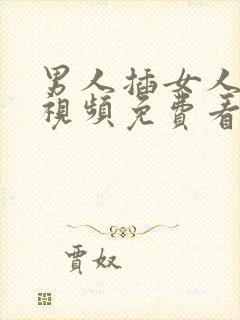 男人插女人
視頻免費看
賈奴